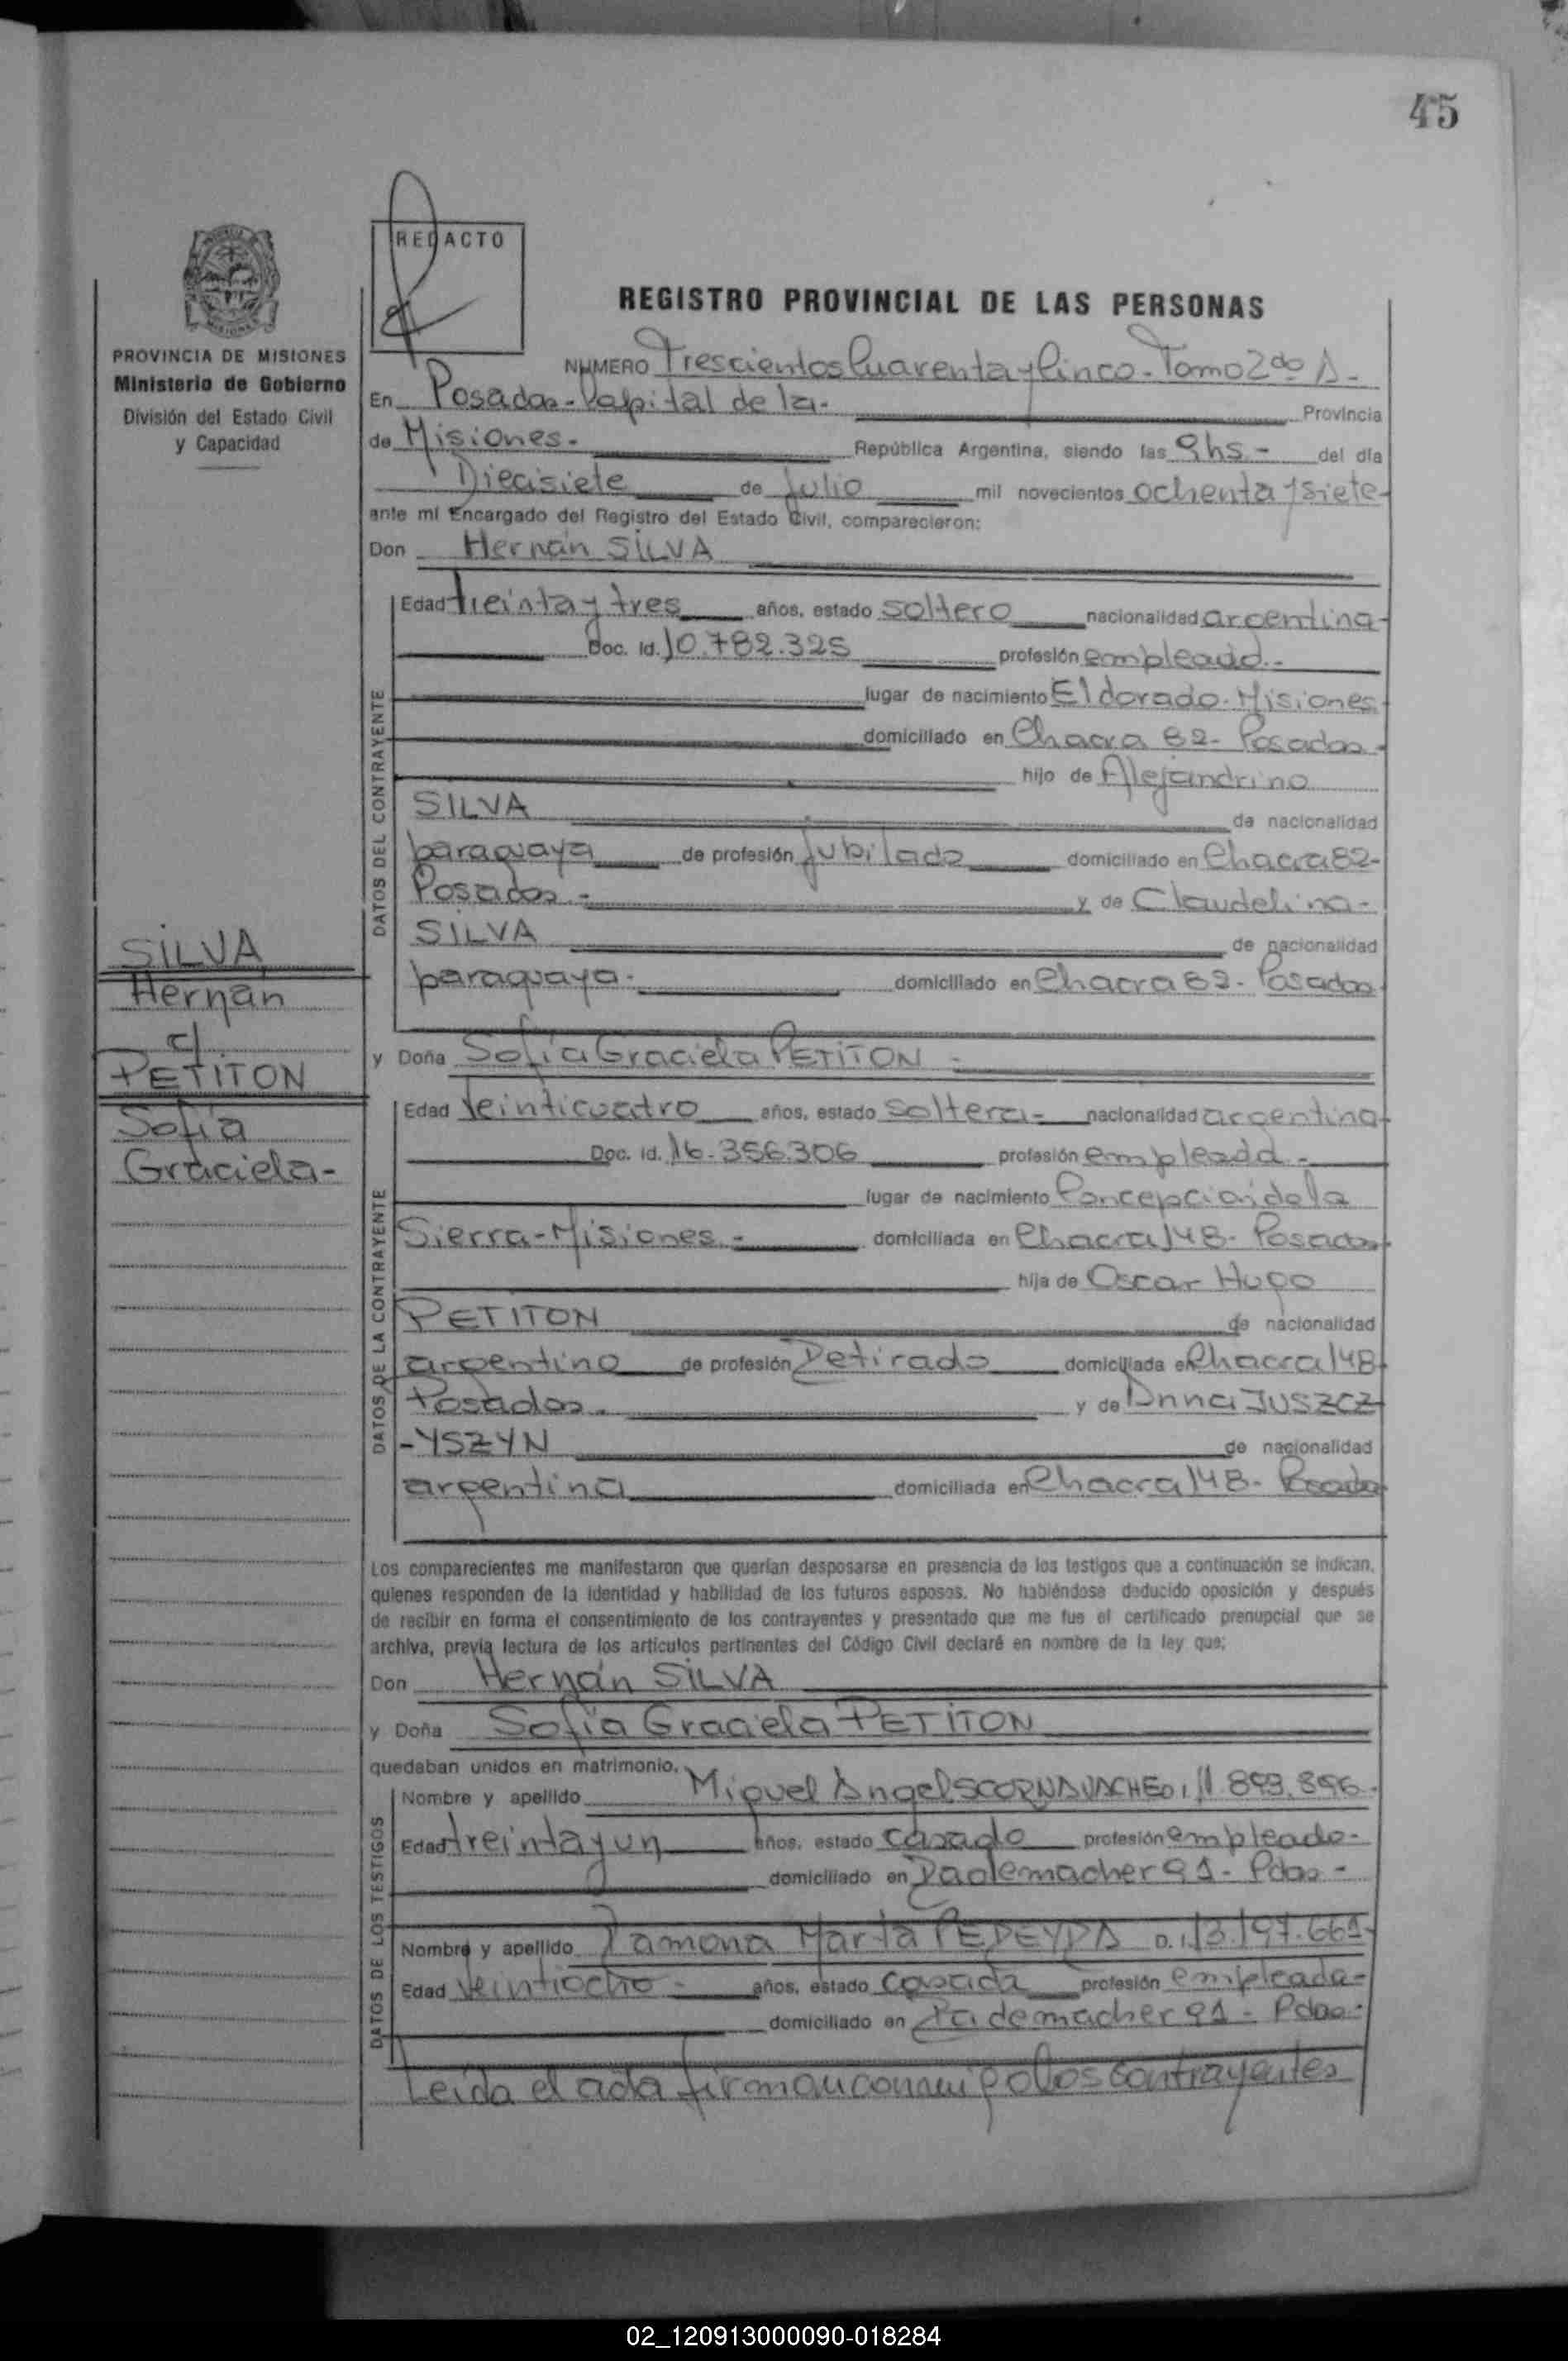 45
REDACTO
REGISTRO PROVINCIAL DE LAS PERSONAS
PROVINCIA DE MISIONES
Ministerio de Gobierno
División del Estado Civil
y Capacidad
NUMERO Trescientos Cuarenta y Cinco - Tomo 2do A -
En Posadas - Capital de la - Provincia
de Misiones - República Argentina, siendo las 9 hs - del día
Diecisiete de Julio mil novecientos ochenta y siete -
ante mi Encargado del Registro del Estado Civil, comparecieron:
Don Hernán SILVA
Edad treinta y tres años, estado soltero nacionalidad argentina -
Doc. Id. 10.782.325 profesión empleado -
lugar de nacimiento Eldorado - Misiones
domiciliado en Chacra 82 - Posadas -
hijo de Alejandrino
SILVA de nacionalidad
paraguaya de profesión jubilado domiciliado en Chacra 82 -
Posadas - y de Claudelina -
SILVA de nacionalidad
paraguaya - domiciliado en Chacra 82 - Posadas
SILVA
Hernán
c/
PETITON
Sofía
Graciela -
y Doña Sofía Graciela PETITON -
Edad Veinticuatro años, estado soltera - nacionalidad argentina -
Doc. Id. 16.356.306 profesión empleada -
lugar de nacimiento Concepción de la
Sierra - Misiones - domiciliada en Chacra 148 - Posadas
hija de Oscar Hugo
PETITON de nacionalidad
argentino de profesión Retirado domiciliada en Chacra 148
Posadas - y de Anna JUSZCZ
-YSZYN de nacionalidad
argentina domiciliada en Chacra 148 - Posadas
Los comparecientes me manifestaron que querían desposarse en presencia de los testigos que a continuación se indican,
quienes responden de la identidad y habilidad de los futuros esposos. No habiéndose deducido oposición y después
de recibir en forma el consentimiento de los contrayentes y presentado que me fue el certificado prenupcial que se
archiva, previa lectura de los artículos pertinentes del Código Civil declaré en nombre de la ley que:
Don Hernán SILVA
y Doña Sofía Graciela PETITON
quedaban unidos en matrimonio.
Nombre y apellido Miguel Angel SCORNAVACHE D.I. 11.893.896 -
Edad treinta y un años, estado casado profesión empleado -
domiciliado en Rademacher 91 - Pdas -
Nombre y apellido Ramona Marta PEREYRA D.I. 13.197.661 -
Edad Veintiocho - años, estado casada profesión empleada -
domiciliado en Rademacher 91 - Pdas -
Leída el acta firman conmigo los contrayentes
DATOS DEL CONTRAYENTE
DATOS DE LA CONTRAYENTE
DATOS DE LOS TESTIGOS
02_120913000090-018284